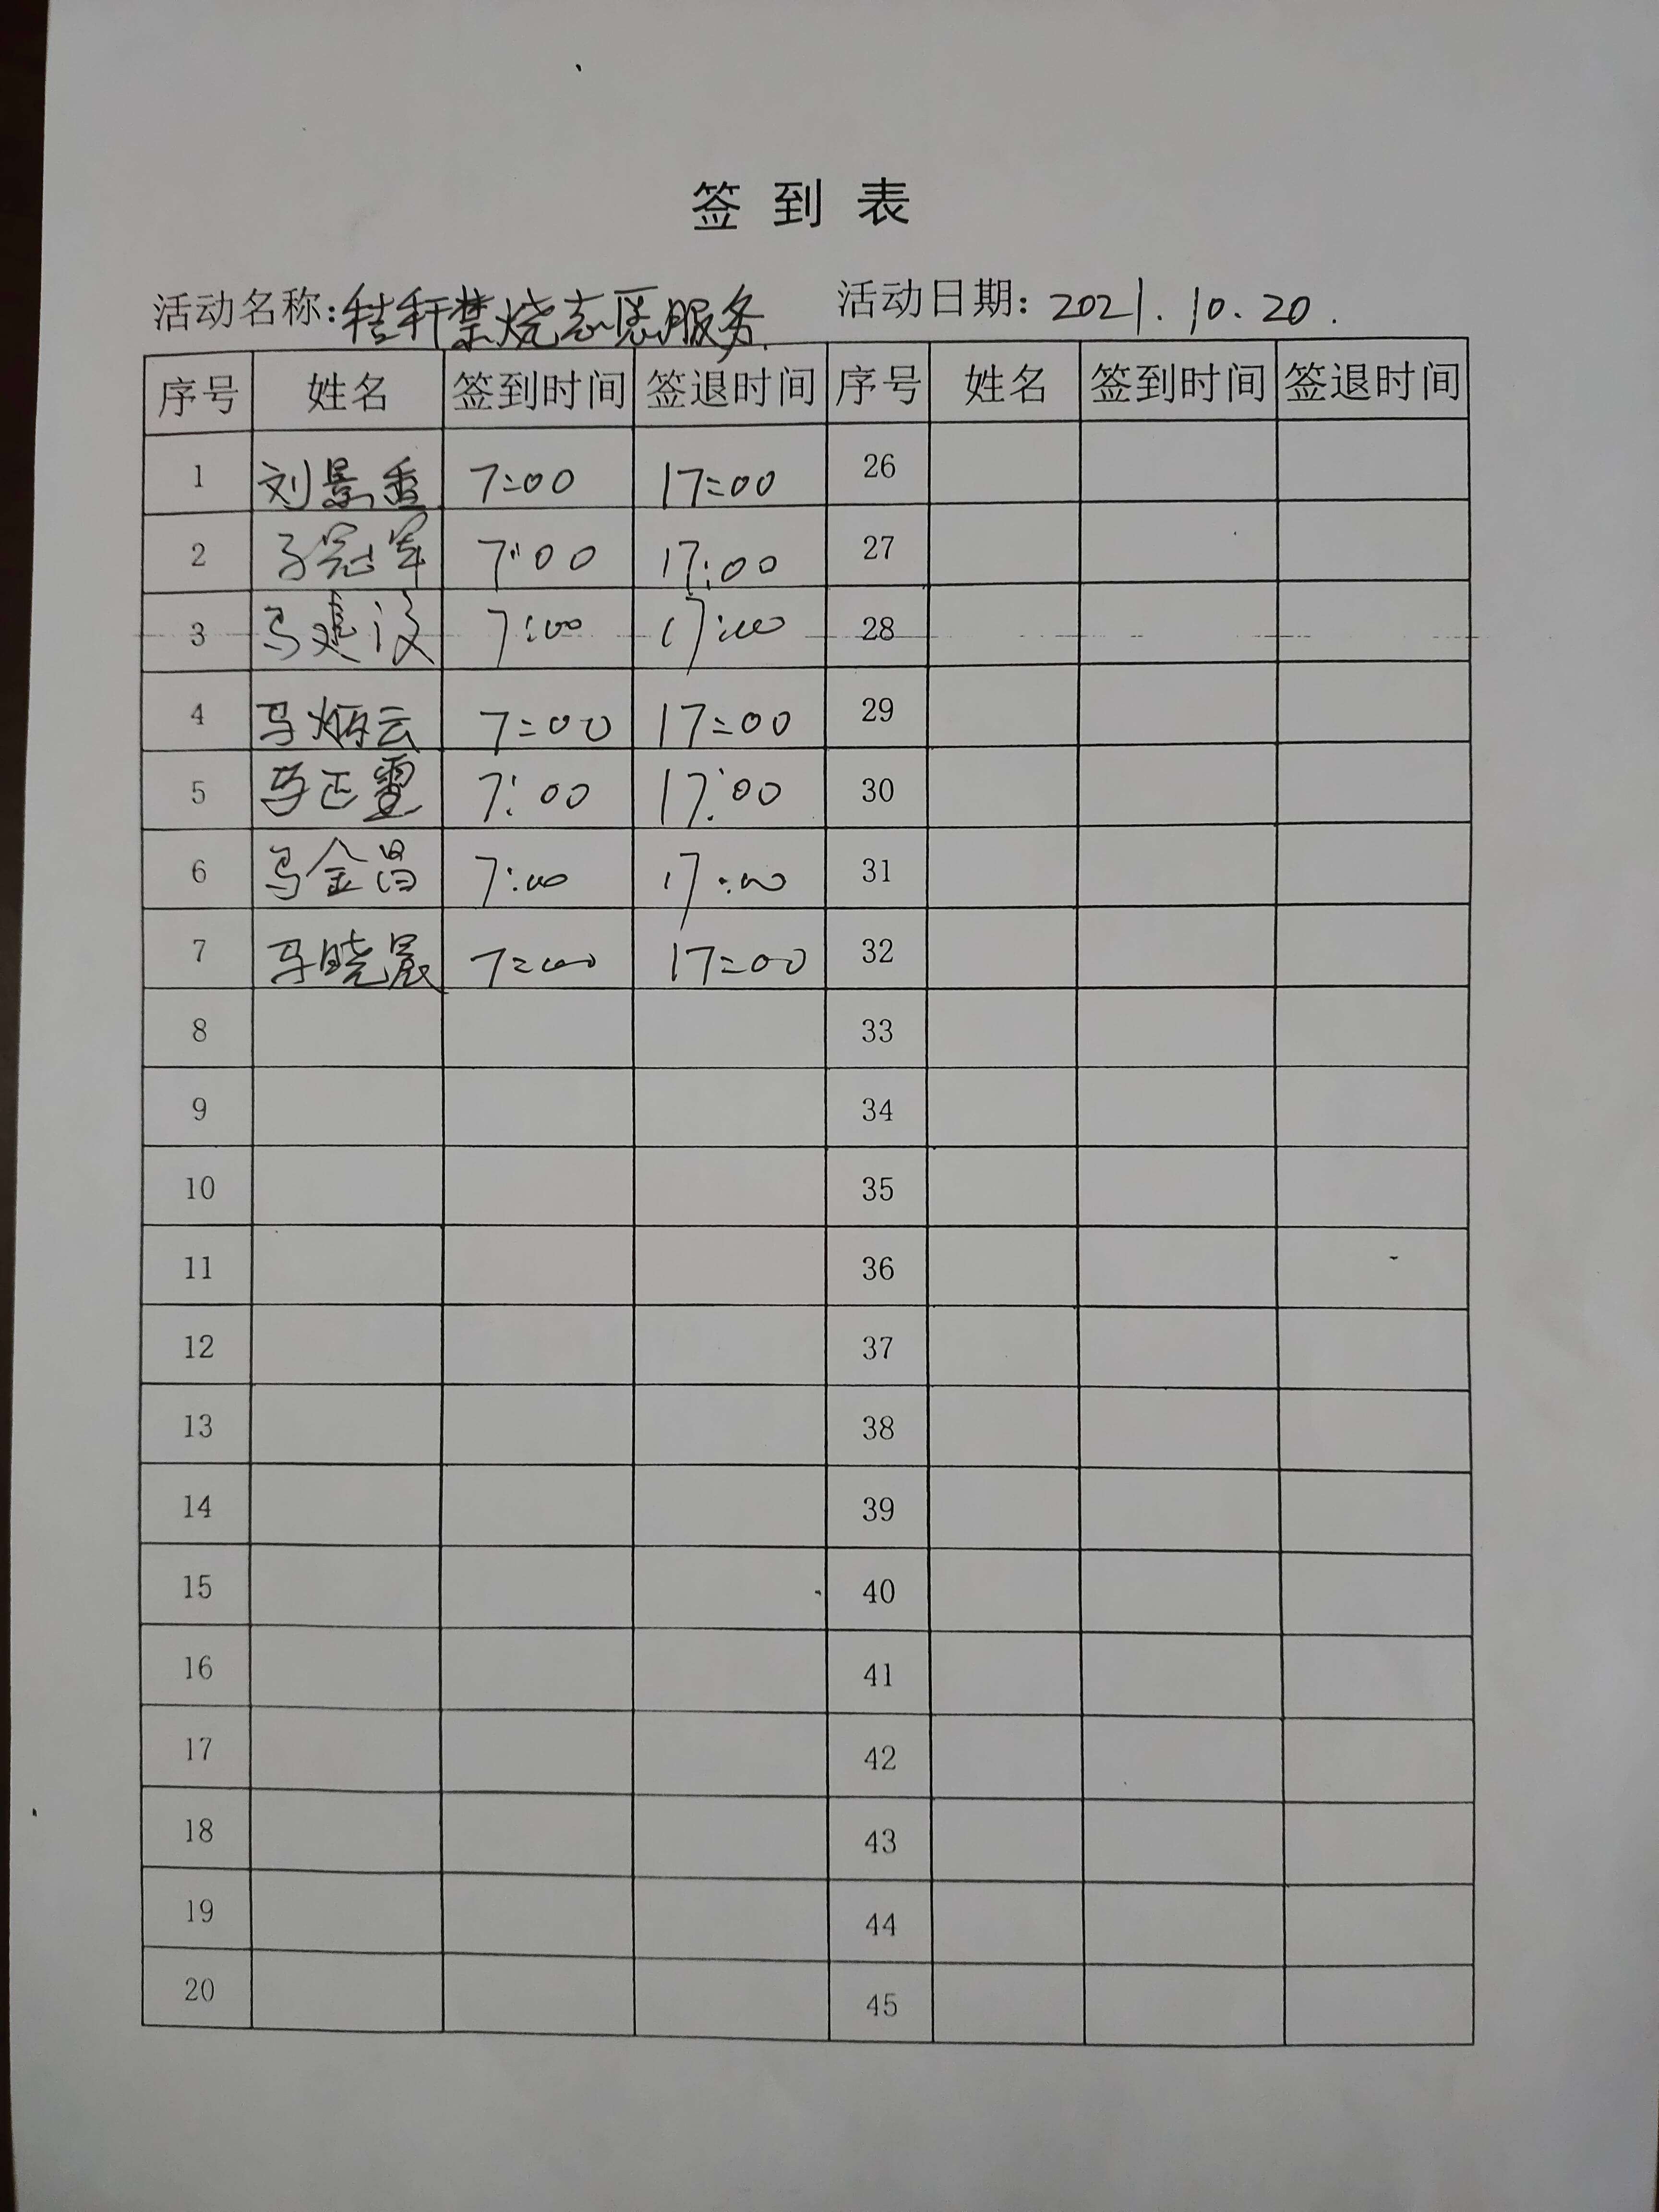 签到表
活动名称:秸秆禁烧志愿服务 活动日期: 2021.10.20.
序号 姓名 签到时间 签退时间 序号 姓名 签到时间 签退时间
1 刘景重 7:00 17:00 26
2 马冠军 7:00 17:00 27
3 马建设 7:00 17:00 28
4 马炳云 7:00 17:00 29
5 马正 7:00 17:00 30
6 马金昌 7:00 17:00 31
7 马晓晨 7:00 17:00 32
8 33
9 34
10 35
11 36
12 37
13 38
14 39
15 40
16 41
17 42
18 43
19 44
20 45